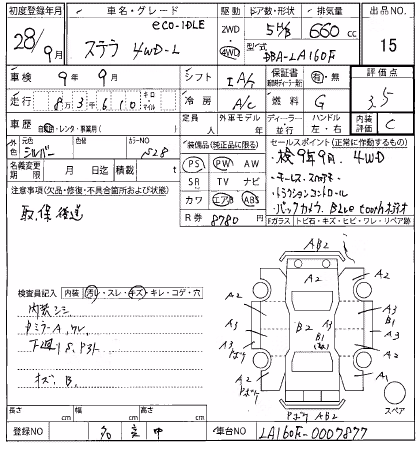 初度登録年月 車名・グレード 駆動 ドア数・形状 排気量 出品NO.
28年9月 ステラ eco-IDLE 4WD-L 2WD 4WD 5 660cc 15
型式 DBA-LA160F
車検 9年9月 シフト IA/t 保証書 有・無 評価点
走行 83610 キロ マイル 冷房 A/C 燃料 G 3.5
車歴 自家用・レンタ・事業用( ) 定員 人 外車モデル 年 ディーラー・並行 ハンドル 左・右 内装評価 C
外色 元色 シルバー 色替 カラーNO
名義変更期限 月 日迄 積載 t
装備品(純正品に限る)
PS PW AW
SR TV ナビ
カワ エアB ABS
R券 8780 円
セールスポイント(正常に作動するもの)
・検9年9月 4WD
・キーレス・スペアキー
・トラクションコントロール
・バックカメラ Bluetooth
Fガラス トビ石・キズ・ヒビ・ワレ・リペア跡
注意事項(欠品・修復・不具合箇所および状態)
取・保 後送
検査員記入 内装 汚れ・スレ・キズ・キレ・コゲ・穴
内装シミ
キズ B.
AB2
A2
A2
A2
A3
A1
B2
B1
A3
B1
A3
A3
A2
A2
A1
スペア
AB2
長さ cm 幅 cm 高さ cm
登録NO 車台NO LA160F-0007877